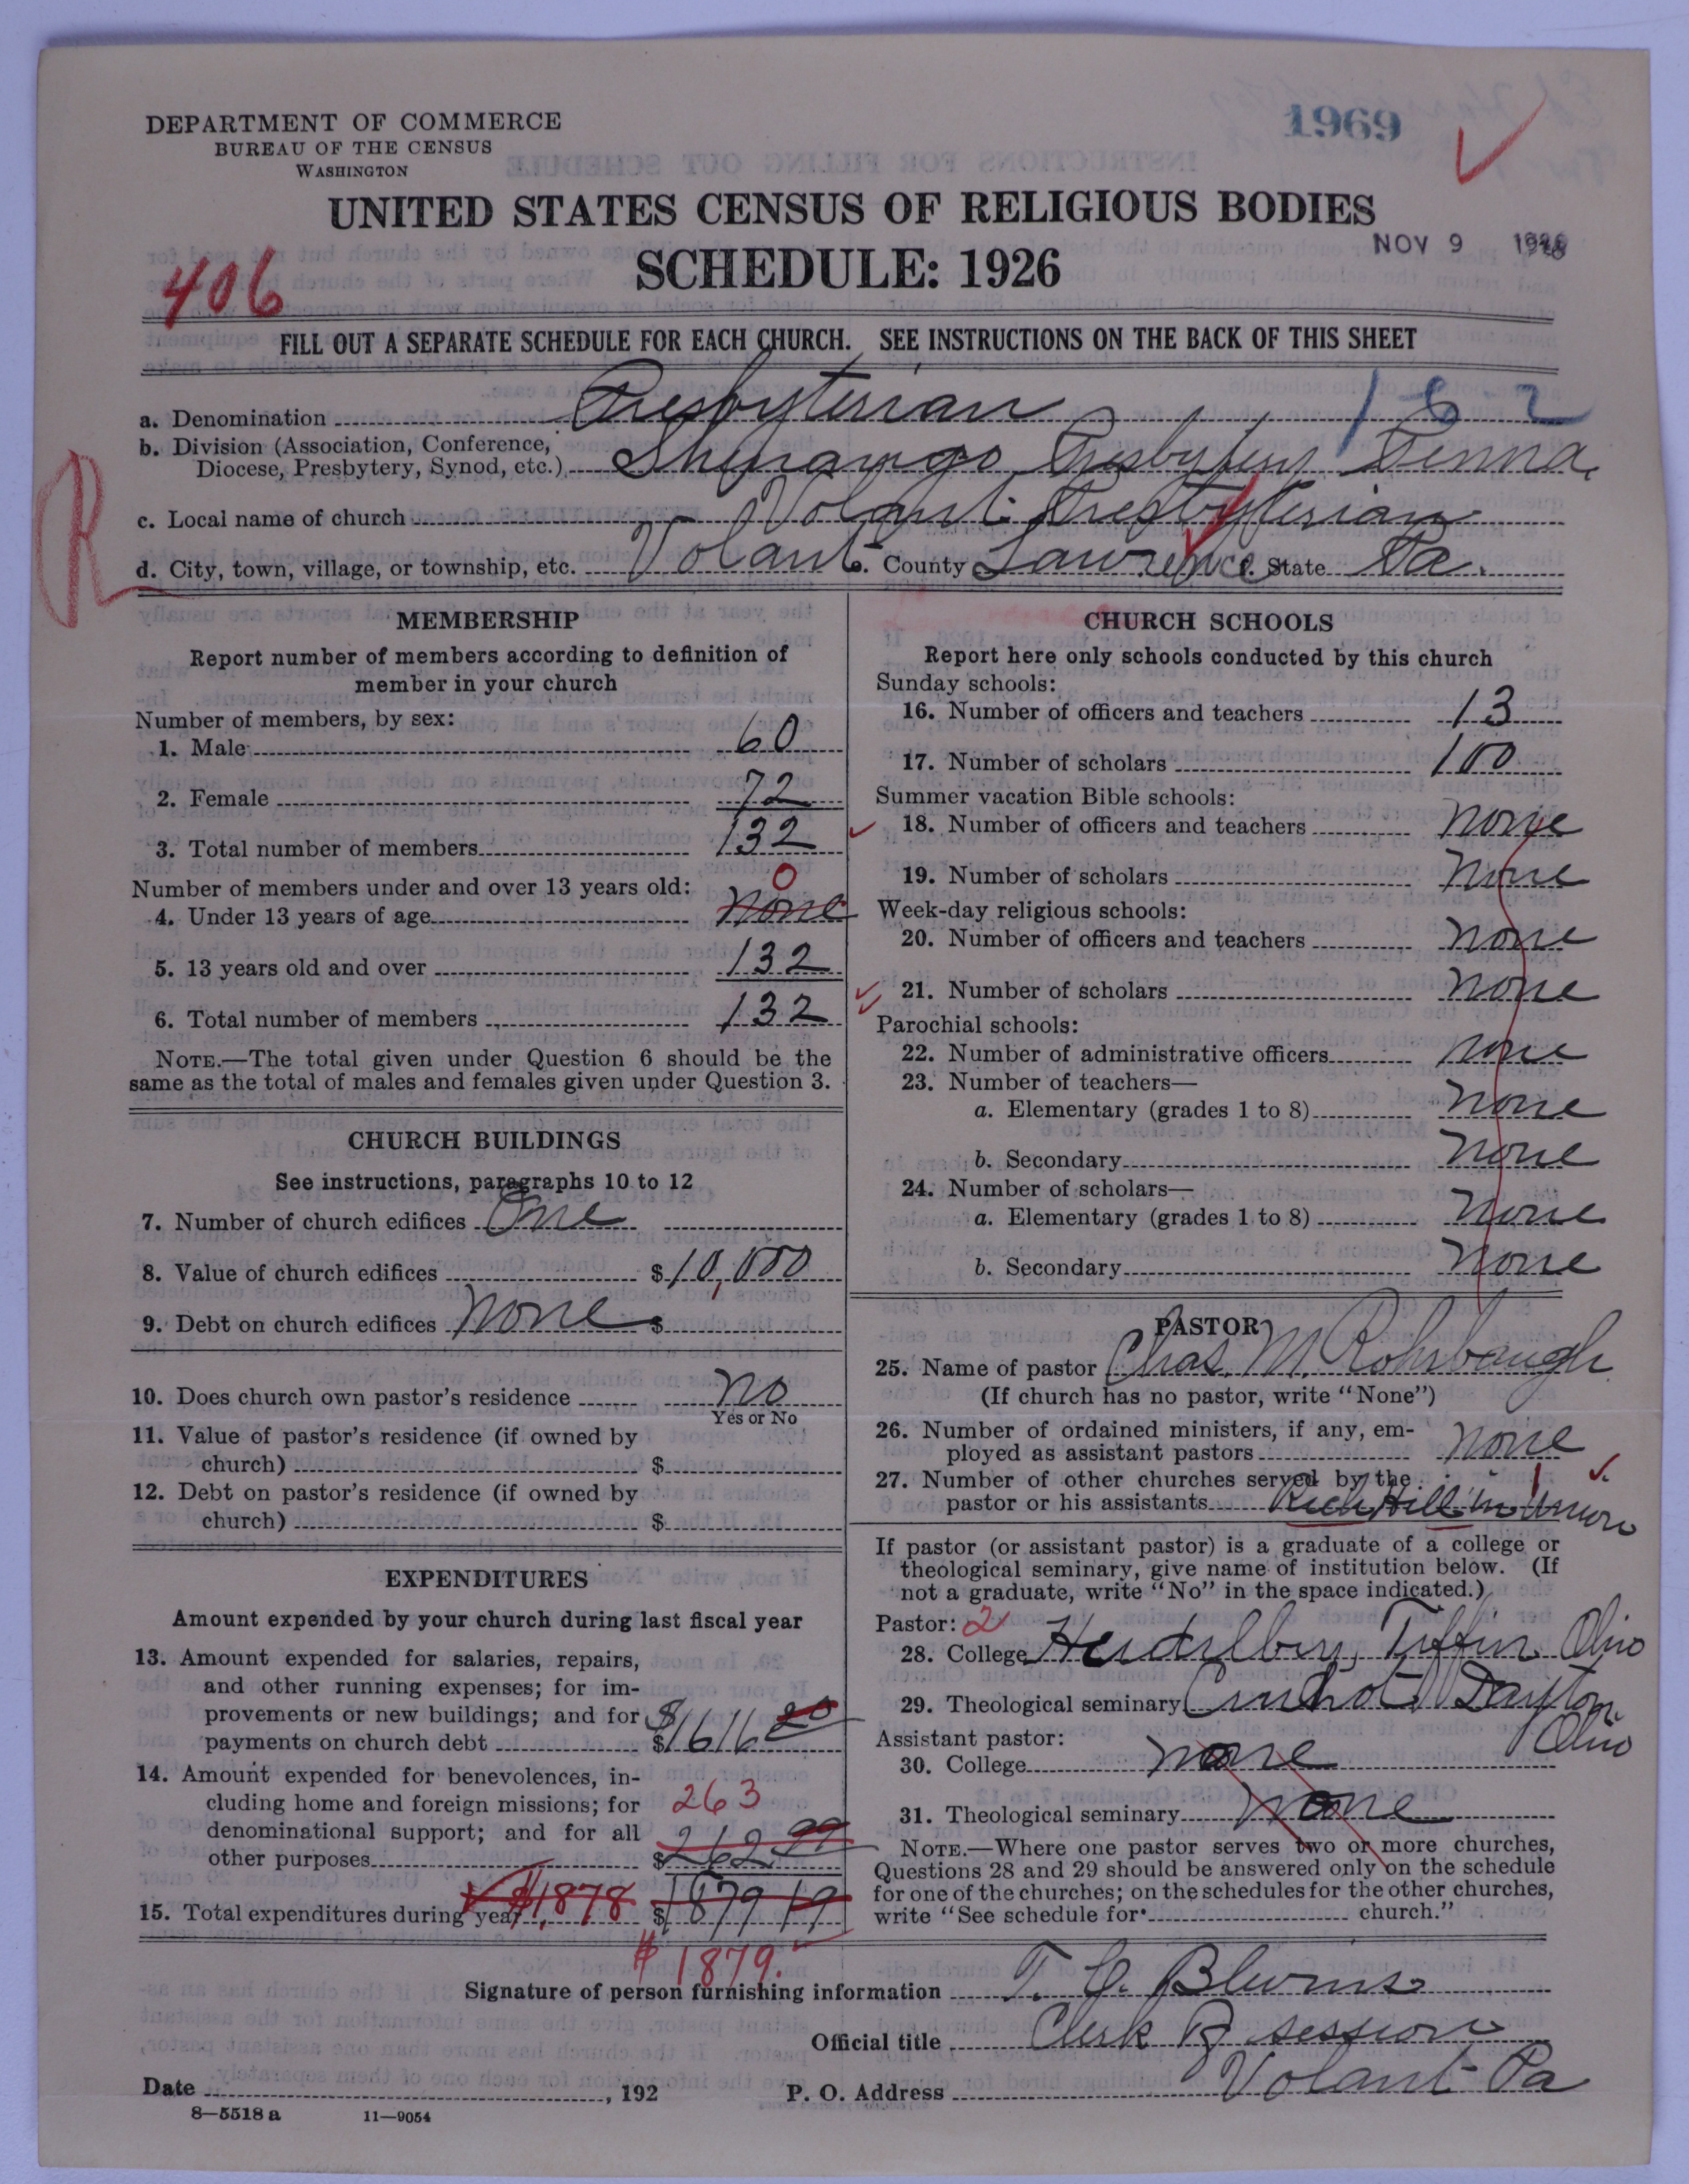 DEPARTMENT OF COMMERCE
BUREAU OF THE CENSUS
WASHINGTON
1969
UNITED STATES CENSUS OF RELIGIOUS BODIES
NOV 9 1926
SCHEDULE: 1926
406
FILL OUT A SEPARATE SCHEDULE FOR EACH CHURCH. SEE INSTRUCTIONS ON THE BACK OF THIS SHEET
a. Denomination Presbyterian 162
b. Division (Association, Conference,
Diocese, Presbytery, Synod, etc.) Shenango Presbytery Penna.
R
c. Local name of church Volant Presbyterian
d. City, town, village, or township, etc. Volant County Lawrence State Pa.
MEMBERSHIP
Report number of members according to definition of
member in your church
Number of members, by sex:
1. Male 60
2. Female 72
3. Total number of members 132
Number of members under and over 13 years old: 0
4. Under 13 years of age none
5. 13 years old and over 132
6. Total number of members 132
NOTE.—The total given under Question 6 should be the
same as the total of males and females given under Question 3.
CHURCH BUILDINGS
See instructions, paragraphs 10 to 12
7. Number of church edifices One
8. Value of church edifices $10,000
9. Debt on church edifices none $
10. Does church own pastor's residence no
Yes or No
11. Value of pastor's residence (if owned by
church) $
12. Debt on pastor's residence (if owned by
church) $
EXPENDITURES
Amount expended by your church during last fiscal year
13. Amount expended for salaries, repairs,
and other running expenses; for im-
provements or new buildings; and for $
payments on church debt $1616 20
14. Amount expended for benevolences, in-
cluding home and foreign missions; for 263
denominational support; and for all
other purposes $262 99
15. Total expenditures during year $1878 $1879 19
$1879.
CHURCH SCHOOLS
Report here only schools conducted by this church
Sunday schools:
16. Number of officers and teachers 13
17. Number of scholars 100
Summer vacation Bible schools:
18. Number of officers and teachers none
19. Number of scholars none
Week-day religious schools:
20. Number of officers and teachers none
21. Number of scholars none
Parochial schools:
22. Number of administrative officers none
23. Number of teachers—
a. Elementary (grades 1 to 8) none
b. Secondary none
24. Number of scholars—
a. Elementary (grades 1 to 8) none
b. Secondary none
PASTOR
25. Name of pastor Chas. M. Rohrbaugh
(If church has no pastor, write "None")
26. Number of ordained ministers, if any, em-
ployed as assistant pastors none
27. Number of other churches served by the 1
pastor or his assistants Rich Hill in Union
If pastor (or assistant pastor) is a graduate of a college or
theological seminary, give name of institution below. (If
not a graduate, write "No" in the space indicated.)
Pastor: 2
28. College Heidelberg, Tiffin Ohio
29. Theological seminary Dayton
Ohio
Assistant pastor:
30. College none
31. Theological seminary none
NOTE.—Where one pastor serves two or more churches,
Questions 28 and 29 should be answered only on the schedule
for one of the churches; on the schedules for the other churches,
write "See schedule for church."
Signature of person furnishing information T. C. Blevins
Official title Clerk of session
Date , 192 P. O. Address Volant Pa
8—5518 a 11—9054